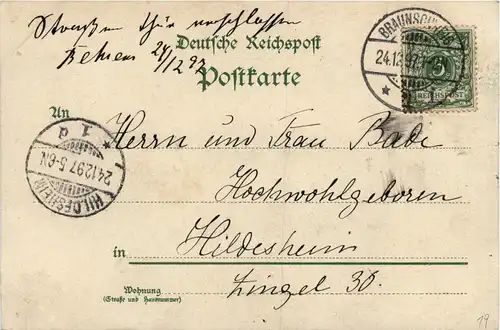 Straßen thür verschlossen
Deutsche Reichspost
Behrens 24/12 97
Postkarte
BRAUNSCHWEIG
24.12.97.
5
REICHSPOST
An
Herrn und Frau Bade
Hochwohlgeboren
in Hildesheim
Zingel 30.
Wohnung
(Straße und Hausnummer)
HILDESHEIM
24.12.97. 5-6N.
* 1 a
19